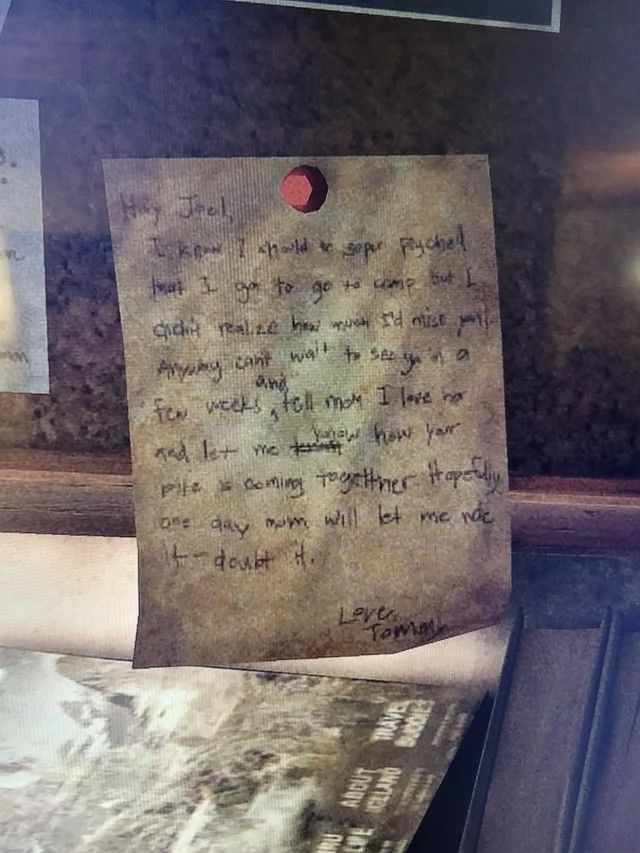 Hey Joel,
I know I should be super psyched
that I got to go to camp but I
didn't realize how much I'd miss you
Anyway cant wait to see ya in a
and
few weeks, tell mom I love her
know
and let me how your
bike is coming together Hopefully
one day mom will let me ride
it - doubt it.
Love,
Tommy
TRAVEL
ABOUT
ICELAND